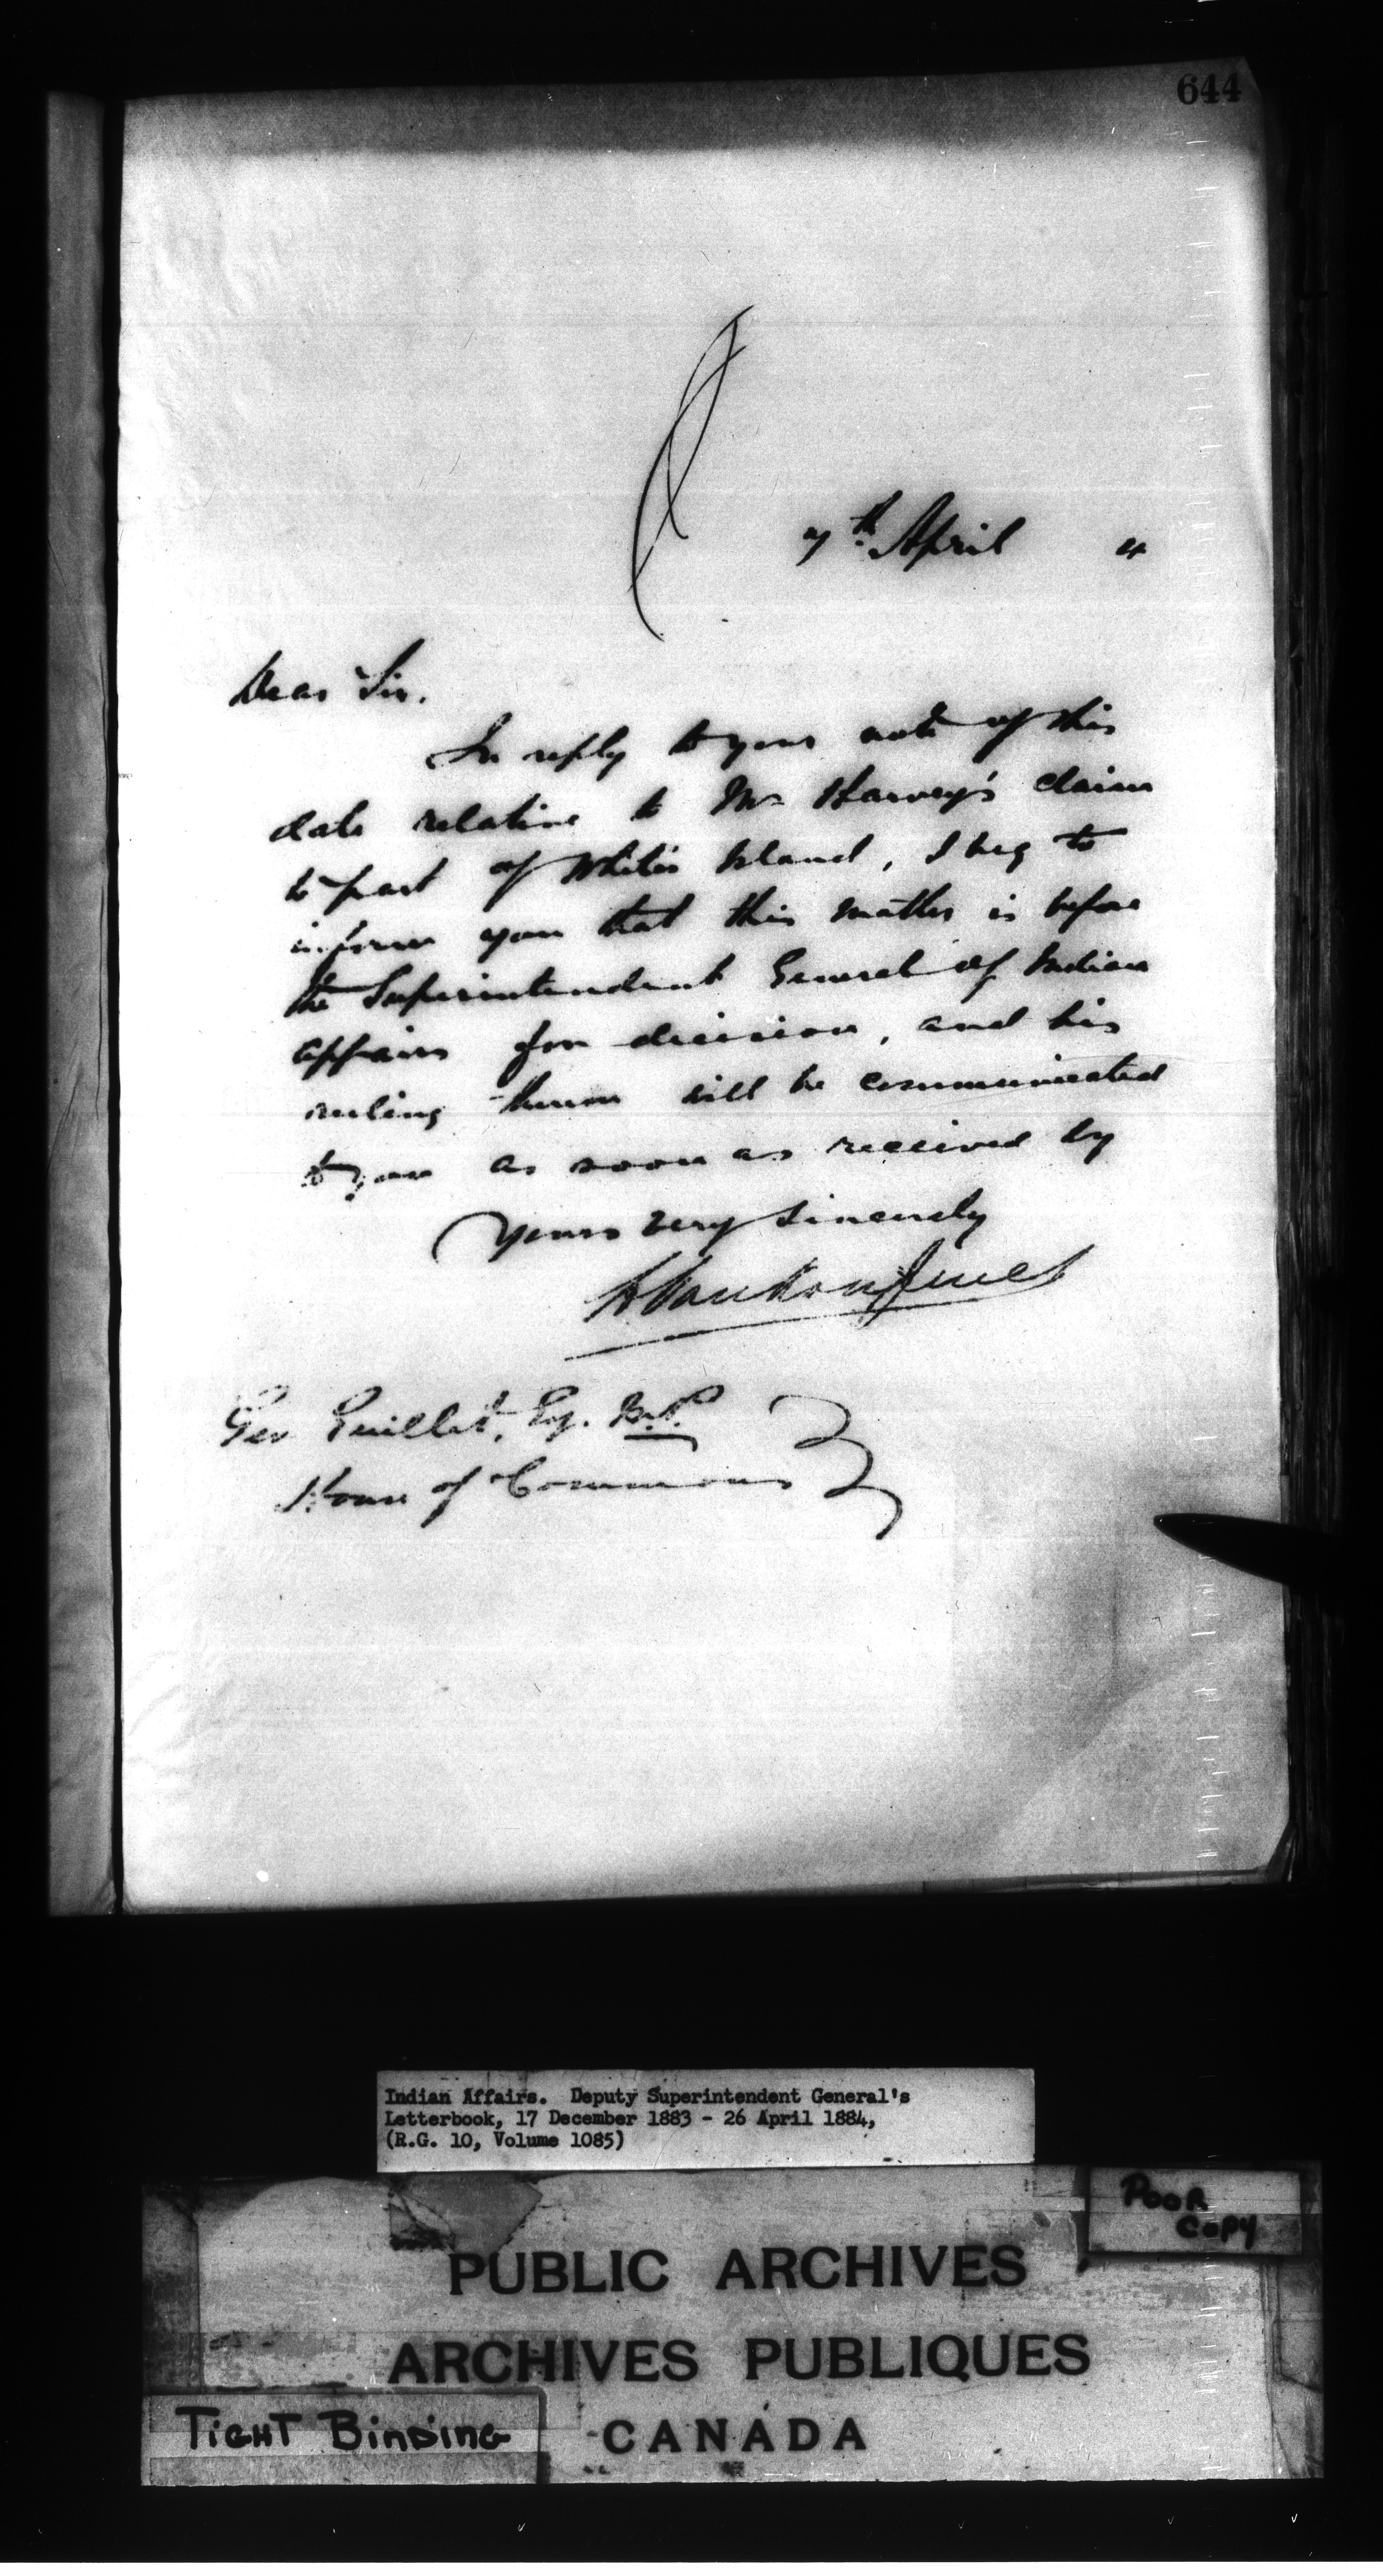 644
7th. April 4
Dear Sir.
In reply to your note of this
date relative to Mr Harvey's claim
to part of White's Island, I beg to
inform you that this matter is before
the Superintendent General of Indian
Affairs for decision, and his
ruling thereon will be communicated
to you as soon as received by
Yours very sincerely
L. VanKoughnet
Geo Guillet, Esq. M.P.
House of Commons
Indian Affairs. Deputy Superintendent General's
Letterbook, 17 December 1883 - 26 April 1884,
(R.G. 10, Volume 1085)
POOR
COPY
PUBLIC ARCHIVES
ARCHIVES PUBLIQUES
TIGHT BINDING
CANADA